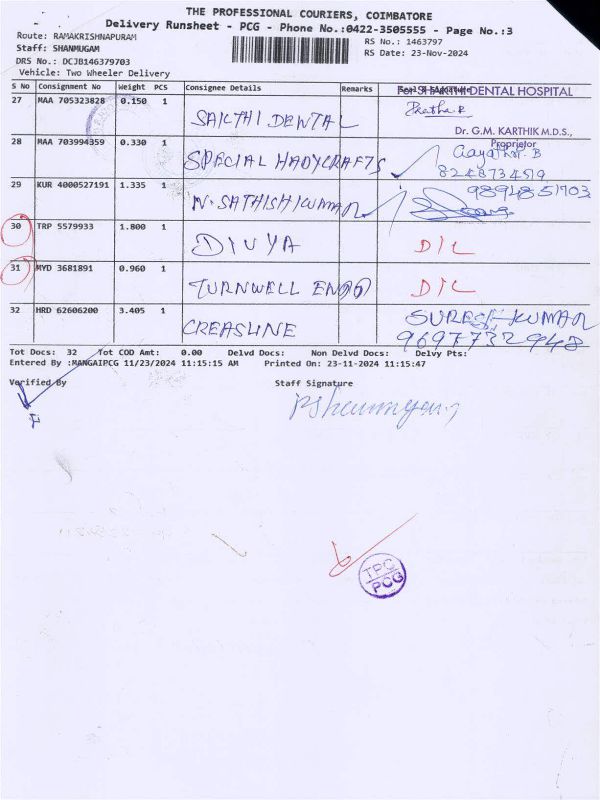 THE PROFESSIONAL COURIERS, COIMBATORE
Delivery Runsheet - PCG - Phone No.:0422-3505555 - Page No.:3
Route: RAMAKRISHNAPURAM
RS No.: 1463797
Staff: SHANMUGAM
RS Date: 23-Nov-2024
DRS No.: DCJB146379703
Vehicle: Two Wheeler Delivery
S No Consignment No Weight PCS Consignee Details Remarks
For SHAKTHI DENTAL HOSPITAL
27 MAA 705323828 0.150 1 SAKTHI DENTAL
Dr. G.M. KARTHIK M.D.S.,
Proprietor
28 MAA 703994359 0.330 1 SPECIAL HADYCRAFTS
8248734519
29 KUR 4000527191 1.335 1 N. SATHISH KUMAR
9894851703
30 TRP 5579933 1.800 1 DIVYA D/L
31 MYD 3681891 0.960 1 TURNWELL D/L
32 HRD 62606200 3.405 1 CREASLINE SURESH KUMAR
9697732948
Tot Docs: 32 Tot COD Amt: 0.00 Delvd Docs: Non Delvd Docs: Delvy Pts:
Entered By :MANGAIPCG 11/23/2024 11:15:15 AM Printed On: 23-11-2024 11:15:47
Verified By Staff Signature
TPC
PCG